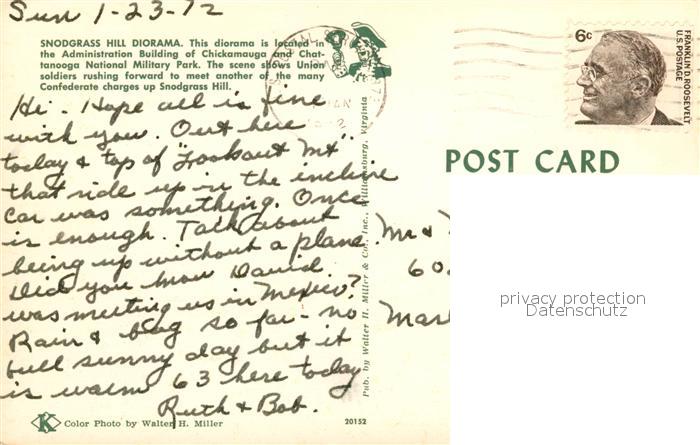 Sun 1-23-72
SNODGRASS HILL DIORAMA. This diorama is located in
the Administration Building of Chickamauga and Chat-
tanooga National Military Park. The scene shows Union
soldiers rushing forward to meet another of the many
Confederate charges up Snodgrass Hill.
Hi - Hope all is fine
with you. Out here
today & top of "Lookout Mt"
that ride up in the incline
car was something. Once
is enough. Talk about
being up without a plane.
Did you know David
was meeting us in Mexico?
Rain & fog so far - no
full sunny day but it
is warm 63 here today
Ruth & Bob.
K Color Photo by Walter H. Miller
20152
Pub. by Walter H. Miller & Co., Inc., Williamsburg, Virginia
JAN
6c
FRANKLIN D. ROOSEVELT
U.S. POSTAGE
POST CARD
Mr &
60
Mar
privacy protection
Datenschutz